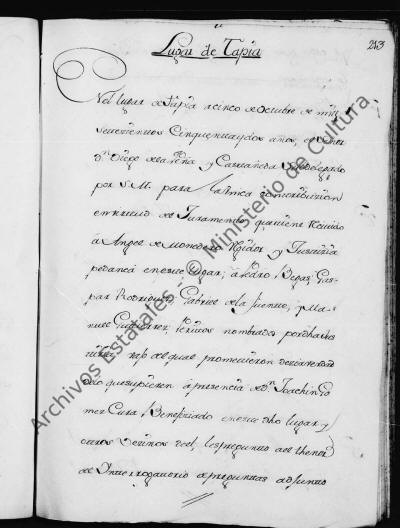 Lugar de Tapia
213
Nel lugar de tapia a cinco de octubre de mill
Settecientos Cinquentaydos años, el Señor
Dn Diego de la Peña y Castañeda Subdelegado
por S. M. para la Unica Contribuzion
en virtud de Juramento, que tiene Recivido
à Angel de Monedero Rexidor y Justizia
pedanea en este lugar; à Pedro Begas, Gas-
par Rodriguez, Gabriel de la fuente, y Ma-
nuel Gutierrez; peritos nombrados por dha
del qual prometieron dezir verdad
de lo que supieren à presencia de Dn Joachin Go
mez Cura Beneficiado en este dho lugar, y
otros Vezinos del, les pregunto al thenor
del Interrogatorio de preguntas adjunto
Archivos Estatales - © Ministerio de Cultura